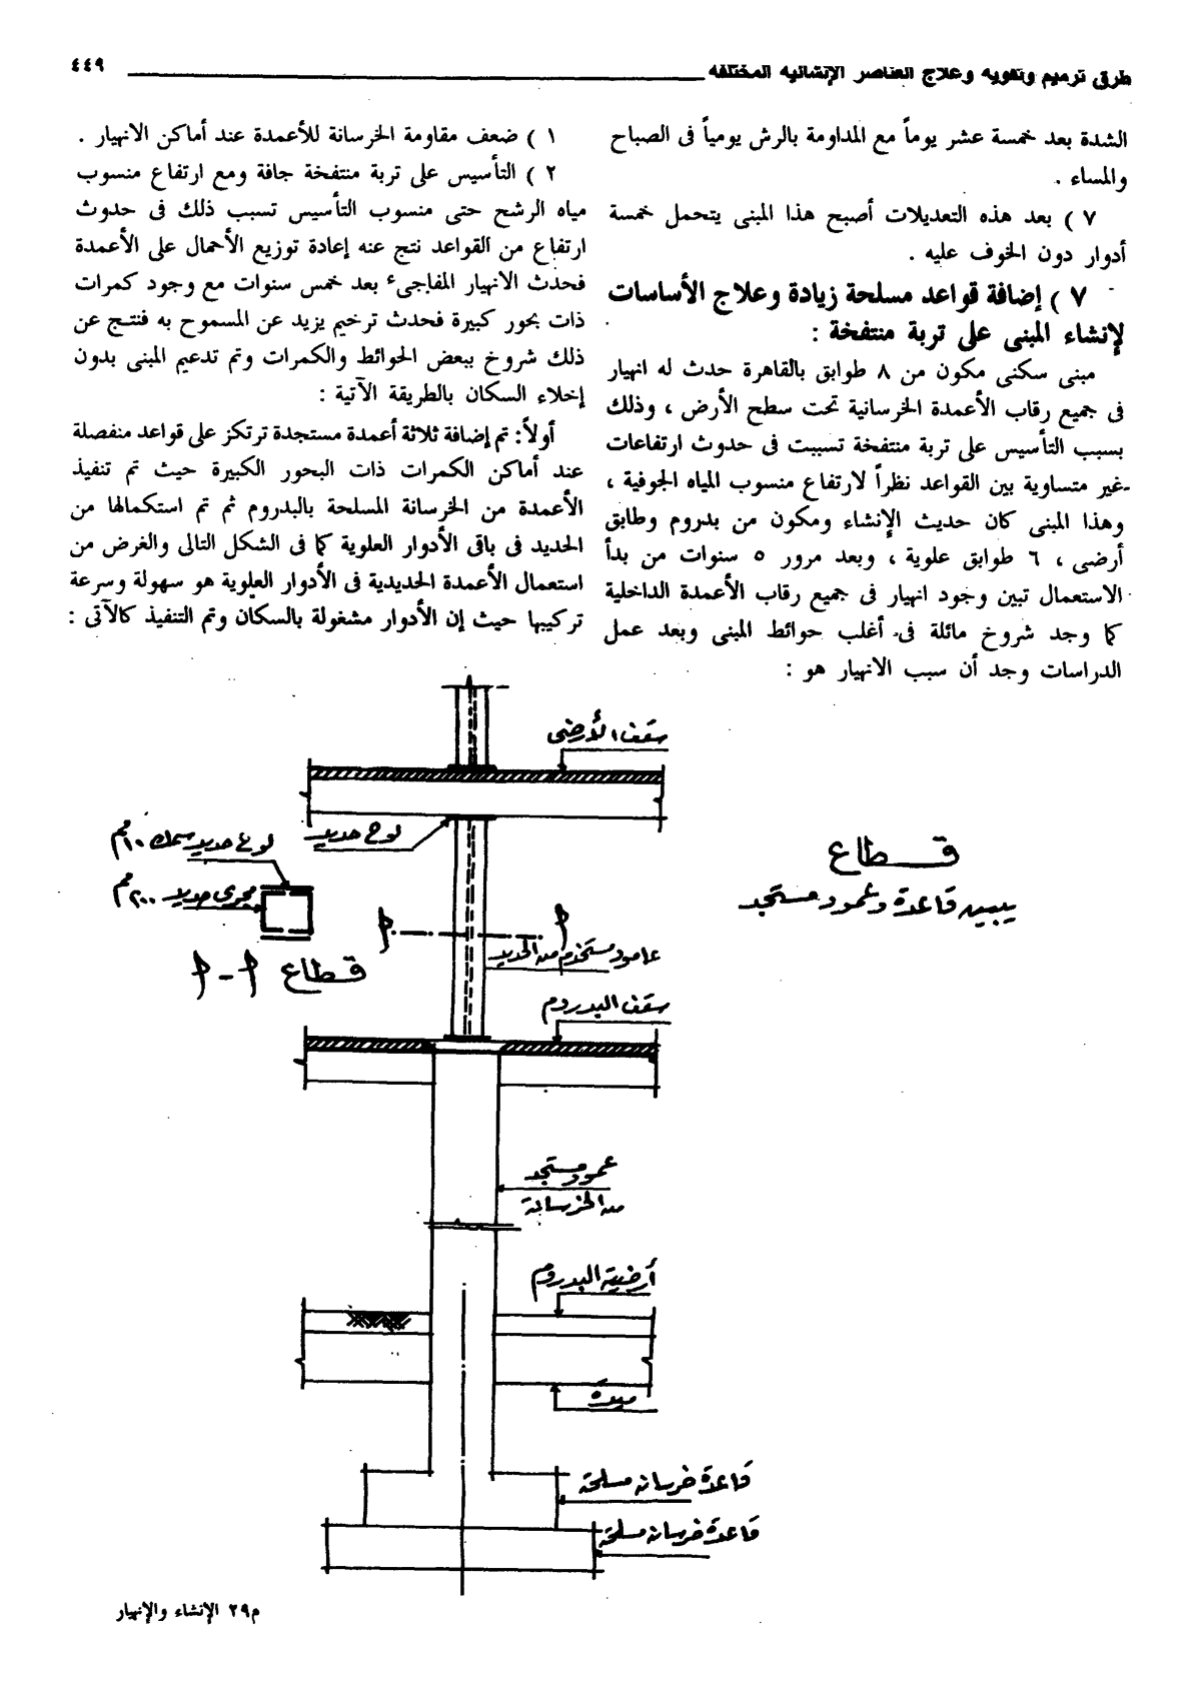 طرق ترميم وتقويه وعلاج العناصر الإنشائيه المختلفه
٤٤٩
الشدة بعد خمسة عشر يوماً مع المداومة بالرش يومياً فى الصباح
والمساء .
٧ ) بعد هذه التعديلات أصبح هذا المبنى يتحمل خمسة
أدوار دون الخوف عليه .
٧ ) إضافة قواعد مسلحة زيادة وعلاج الأساسات
لإنشاء المبنى على تربة منتفخة :
مبنى سكنى مكون من ٨ طوابق بالقاهرة حدث له انهيار
فى جميع رقاب الأعمدة الخرسانية تحت سطح الأرض ، وذلك
بسبب التأسيس على تربة منتفخة تسببت فى حدوث ارتفاعات
غير متساوية بين القواعد نظراً لارتفاع منسوب المياه الجوفية ،
وهذا المبنى كان حديث الإنشاء ومكون من بدروم وطابق
أرضى ، ٦ طوابق علوية ، وبعد مرور ٥ سنوات من بدأ
الاستعمال تبين وجود انهيار فى جميع رقاب الأعمدة الداخلية
كما وجد شروخ مائلة فى أغلب حوائط المبنى وبعد عمل
الدراسات وجد أن سبب الانهيار هو :
١ ) ضعف مقاومة الخرسانة للأعمدة عند أماكن الانهيار .
٢ ) التأسيس على تربة منتفخة جافة ومع ارتفاع منسوب
مياه الرشح حتى منسوب التأسيس تسبب ذلك فى حدوث
ارتفاع من القواعد نتج عنه إعادة توزيع الأحمال على الأعمدة
فحدث الانهيار المفاجىء بعد خمس سنوات مع وجود كمرات
ذات بحور كبيرة فحدث ترخيم يزيد عن المسموح به فنتج عن
ذلك شروخ ببعض الحوائط والكمرات وتم تدعيم المبنى بدون
إخلاء السكان بالطريقة الآتية :
أولاً : تم إضافة ثلاثة أعمدة مستجدة ترتكز على قواعد منفصلة
عند أماكن الكمرات ذات البحور الكبيرة حيث تم تنفيذ
الأعمدة من الخرسانة المسلحة بالبدروم ثم تم استكمالها من
الحديد فى باقى الأدوار العلوية كما فى الشكل التالى والغرض من
استعمال الأعمدة الحديدية فى الأدوار العلوية هو سهولة وسرعة
تركيبها حيث إن الأدوار مشغولة بالسكان وتم التنفيذ كالآتى :
سقف الأرضى
لوح حديد
لوح حديد سمك ١٠ مم
مجرى حديد ٢٠٠ مم
قطاع
يبين قاعدة وعمود مستجد
أ
أ
عامود مستخدم من الحديد
قطاع أ - أ
سقف البدروم
عمود مستجد
من الخرسانة
أرضية البدروم
ميدة
قاعدة خرسانه مسلحة
قاعدة خرسانه مسلحة
م٢٩ الإنشاء والإنهيار